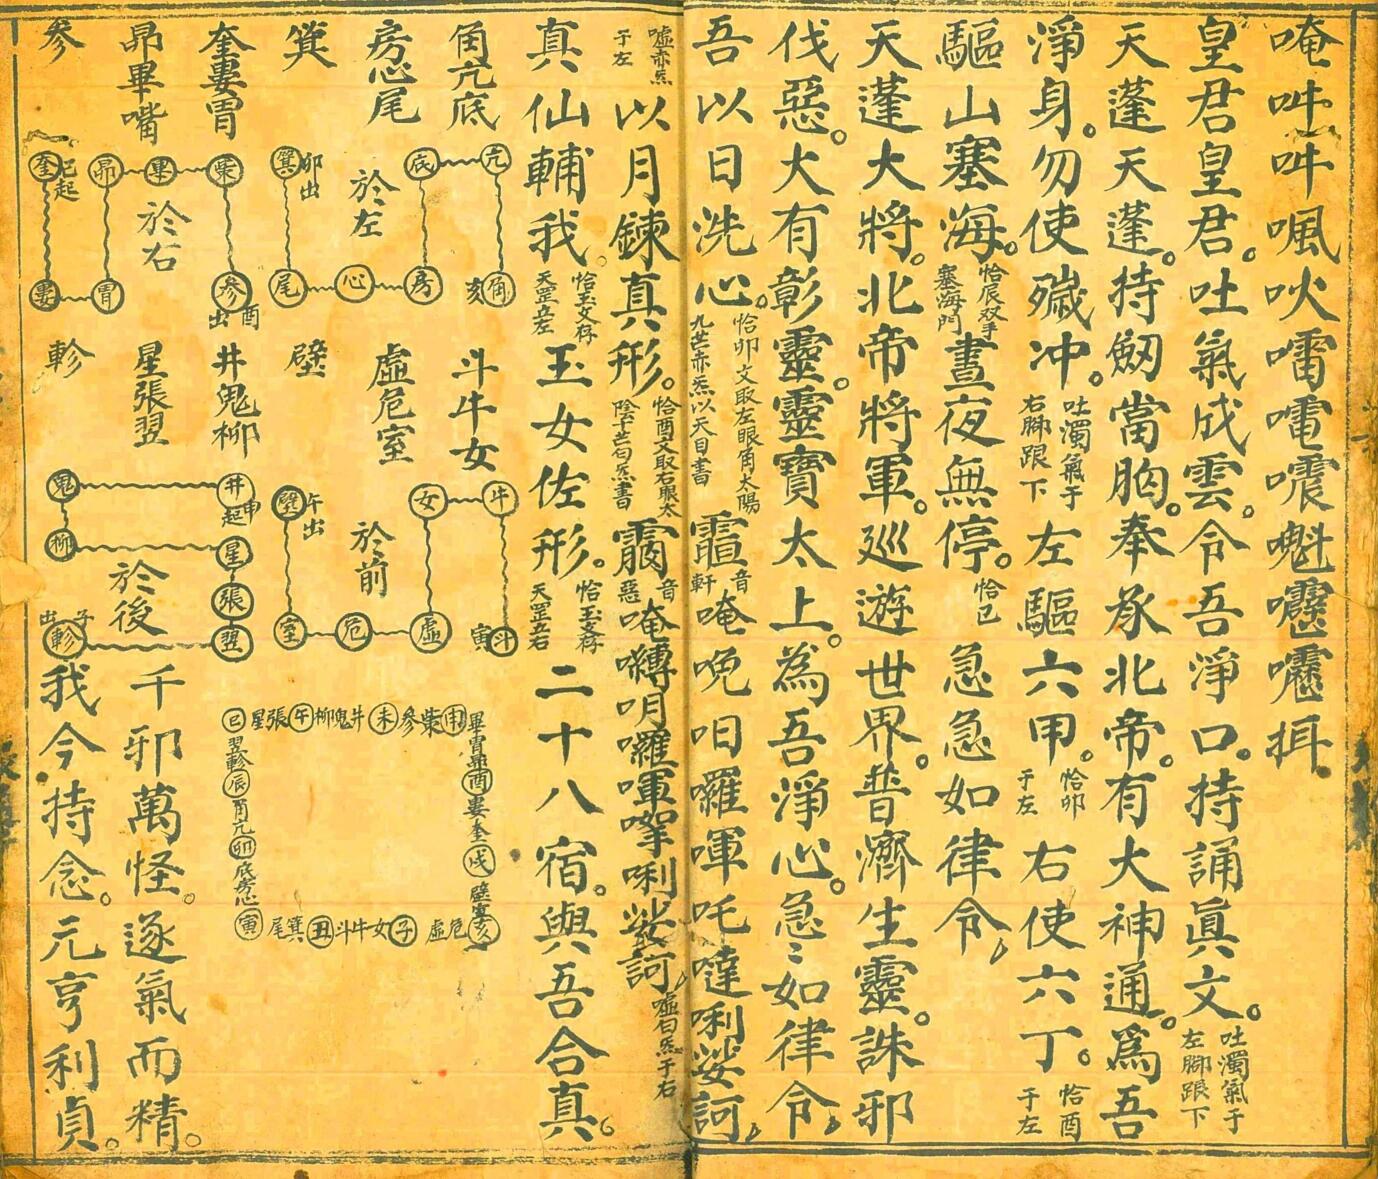 唵吽吽㗾吙嚍噹囔魁𡅖囔揖
皇君皇君。吐氣成雲。令吾淨口。持誦眞文。吐濁氣于左腳跟下
天蓬天蓬。持劒當胸。奉承北帝。有大神通。爲吾
淨身。勿使穢冲。吐濁氣于右腳跟下左驅六甲。恰卯于左右使六丁。恰酉于左
驅山塞海。恰辰双手塞海門晝夜無停。恰已急急如律令
天蓬大將。北帝將軍。巡遊世界。普濟生靈。誅邪
伐惡。大有彰靈。靈寶太上。為吾淨心。急〻如律令
吾以日洗心。恰卯文取左眼角太陽九芒赤炁以天目書音軒唵唲呬囉唓吒噠唎娑訶
噓赤炁于左以月鍊真形。恰酉文取右眼太陰十芒白炁書音惡唵嚩明囉唓唎娑訶噓白炁于右
真仙輔我。恰玉文存天罡立左玉女佐形。恰玉文存天罡立右二十八宿。與吾合真。
角亢底
房心尾
箕
奎婁胃
昴畢嘴
參
亢 底 房 角 亥
心 尾 箕 卯出
於左
柴 畢 昴 胃 婁 奎 已起
參 酉出
於右
斗牛女
虛危室
壁
井鬼柳
星張翌
軫
牛 女 虛 危 室 壁 午出
斗 寅
於前
井 申起 鬼 柳 星 張 翌 軫 子出
於後
巳 星張 午 柳鬼井 未 參柴 申
畢胃昴 酉 婁奎 戌 壁室 亥
翌軫 辰 角亢 卯 底房心 寅
尾箕 丑 斗牛女 子 虛危
千邪萬怪。遂氣而精。
我今持念。元亨利貞。